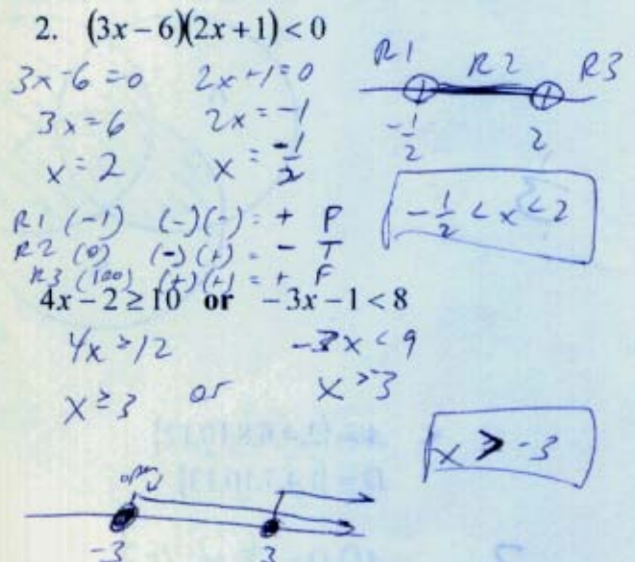 2. (3x−6)(2x+1)<0
3x-6=0 2x+1=0
3x=6 2x=-1
x=2 x=-1/2
R1 R2 R3
-1/2 2
-1/2 < x < 2
R1 (-1) (-)(-)= + F
R2 (0) (-)(+) = - T
R3 (100) (+)(+) = + F
4x−2≥10 or −3x−1<8
4x≥12 -3x<9
x≥3 or x>-3
x > -3
open
-3 3